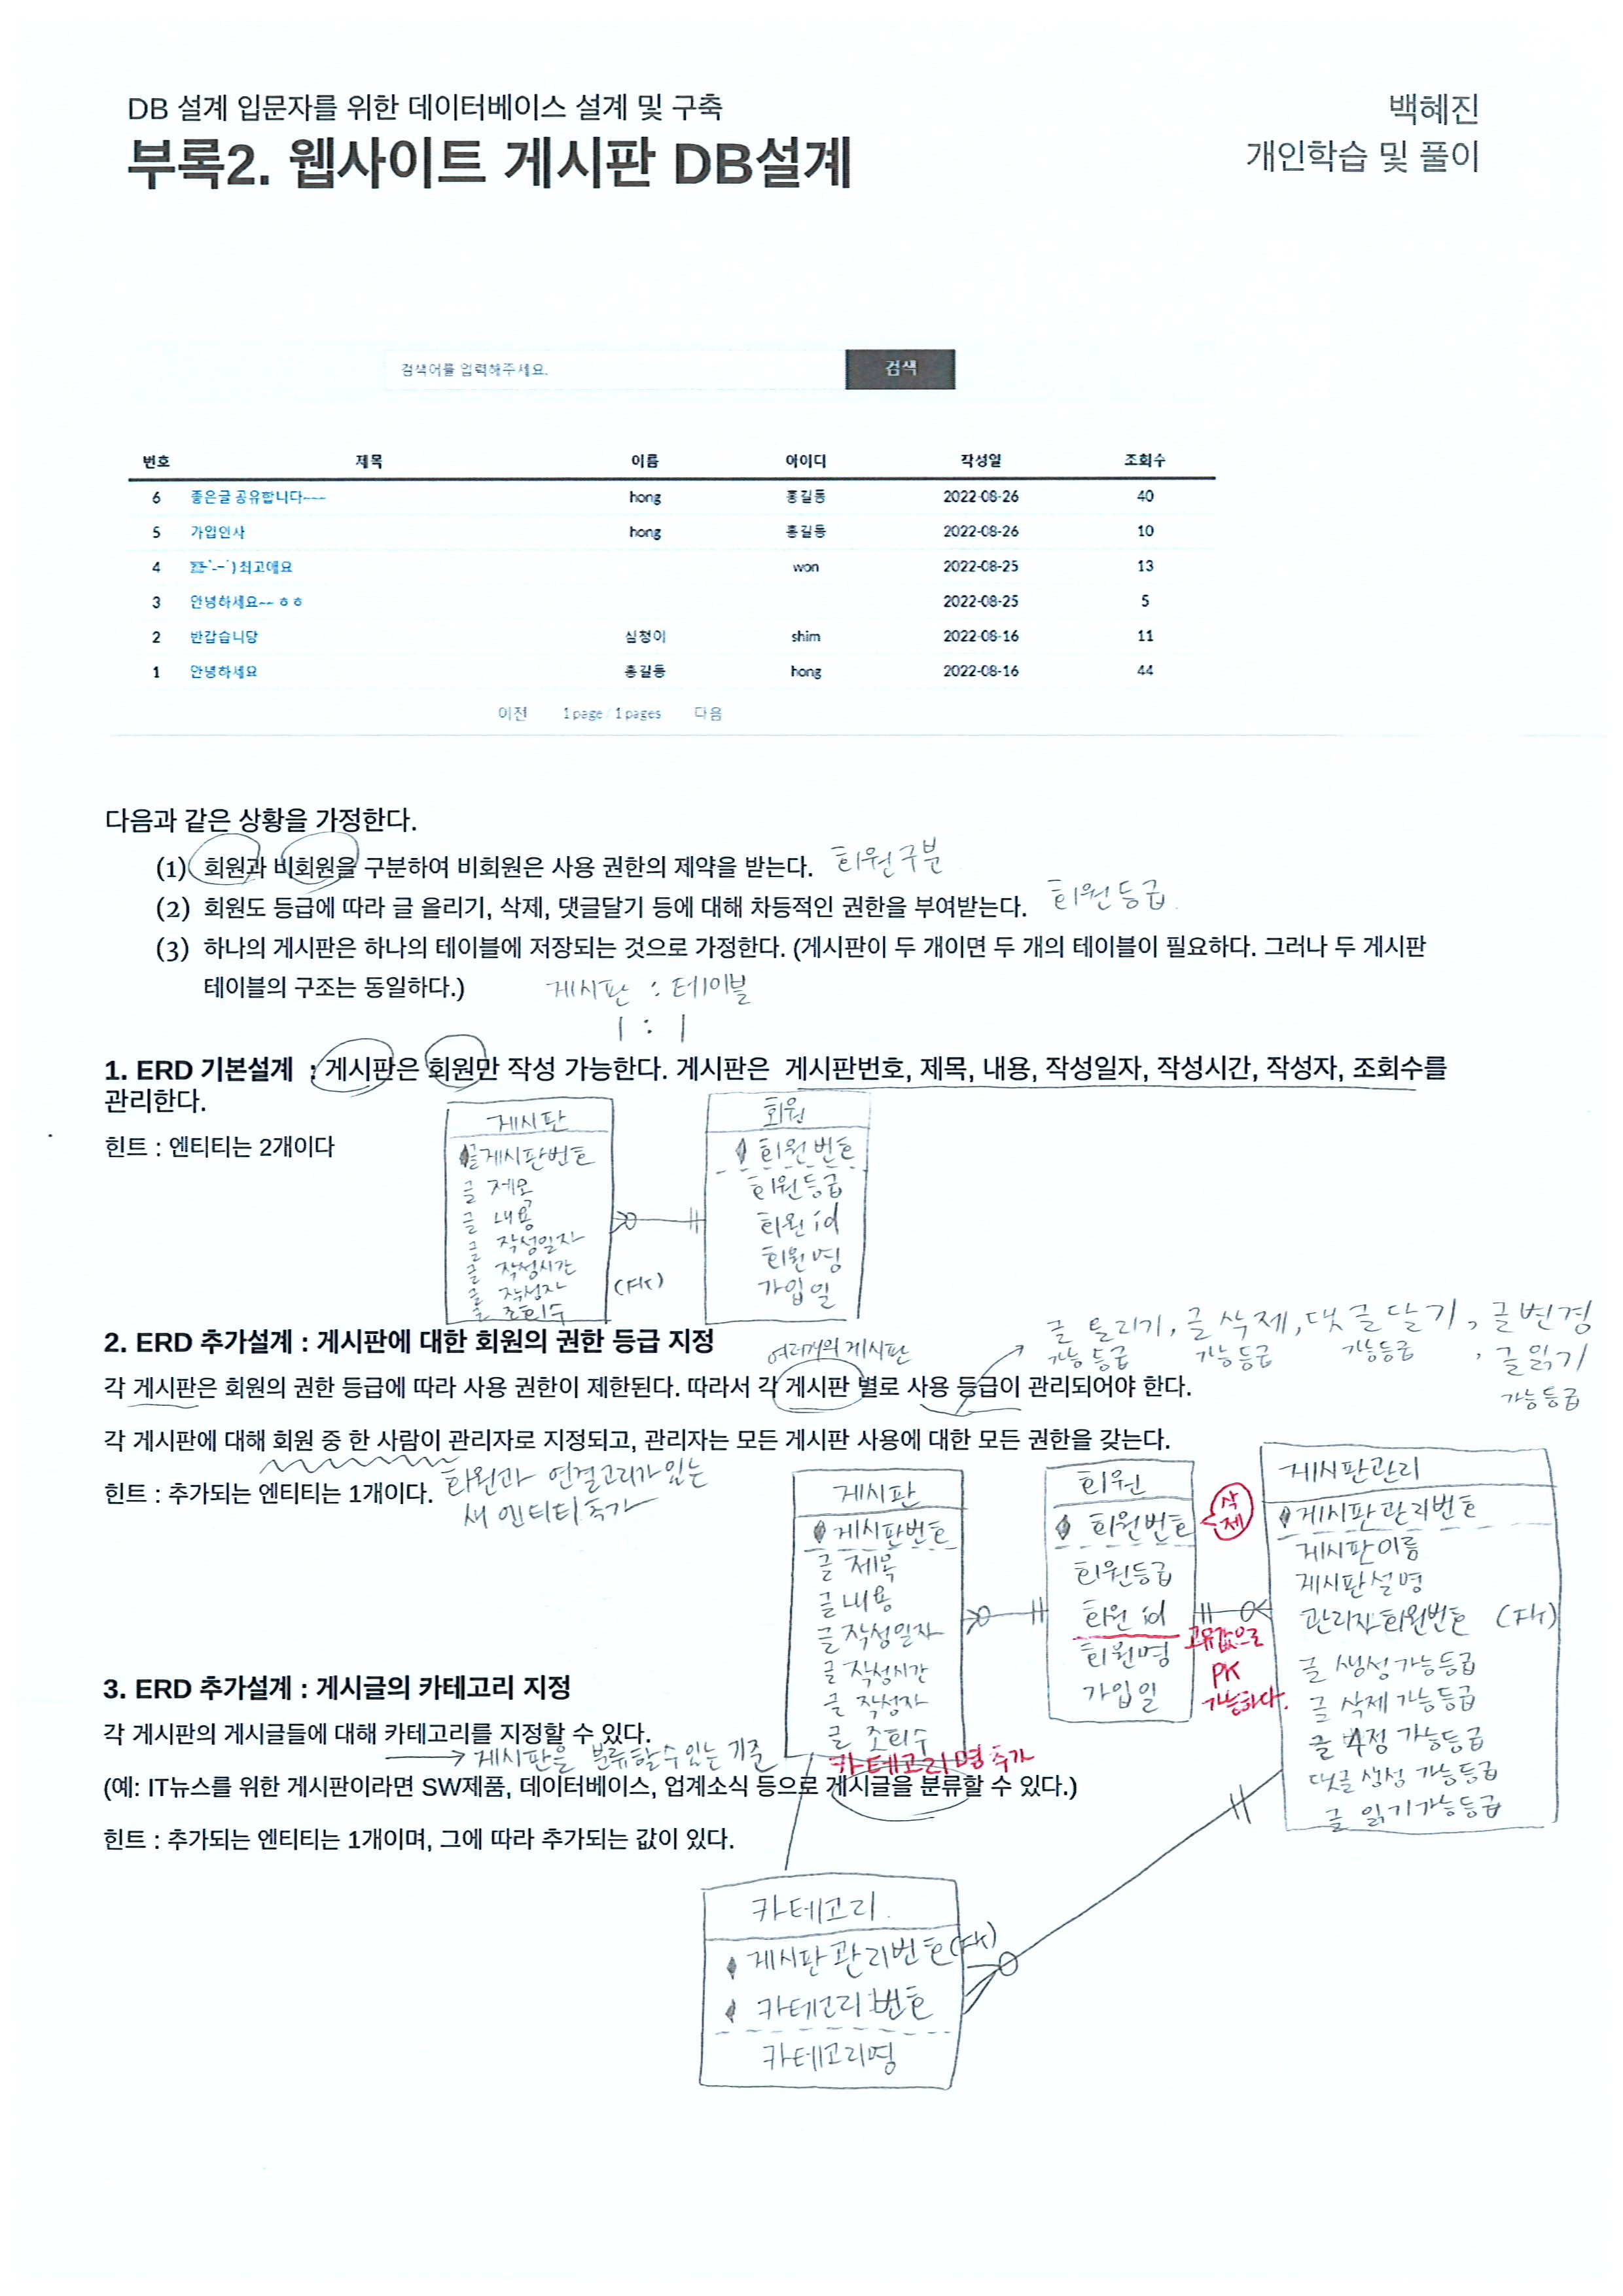 DB 설계 입문자를 위한 데이터베이스 설계 및 구축
부록2. 웹사이트 게시판 DB설계
백혜진
개인학습 및 풀이
검색어를 입력해주세요. 검색
번호 제목 이름 아이디 작성일 조회수
6 좋은글 공유합니다~~~ hong 홍길동 2022-08-26 40
5 가입인사 hong 홍길동 2022-08-26 10
4 최고에요 won 2022-08-25 13
3 안녕하세요~~ ㅎㅎ 2022-08-25 5
2 반갑습니당 심청이 shim 2022-08-16 11
1 안녕하세요 홍길동 hong 2022-08-16 44
이전 1 page / 1 pages 다음
다음과 같은 상황을 가정한다.
(1) 회원과 비회원을 구분하여 비회원은 사용 권한의 제약을 받는다. 회원구분
(2) 회원도 등급에 따라 글 올리기, 삭제, 댓글달기 등에 대해 차등적인 권한을 부여받는다. 회원등급
(3) 하나의 게시판은 하나의 테이블에 저장되는 것으로 가정한다. (게시판이 두 개이면 두 개의 테이블이 필요하다. 그러나 두 게시판
테이블의 구조는 동일하다.) 게시판 : 테이블
1 : 1
1. ERD 기본설계 : 게시판은 회원만 작성 가능한다. 게시판은 게시판번호, 제목, 내용, 작성일자, 작성시간, 작성자, 조회수를
관리한다.
힌트 : 엔티티는 2개이다
게시판
게시판번호
글 제목
글 내용
글 작성일자
글 작성시간
글 작성자 (FK)
글 조회수
회원
회원번호
회원등급
회원id
회원명
가입일
2. ERD 추가설계 : 게시판에 대한 회원의 권한 등급 지정
여러개의 게시판
글 올리기, 글 삭제, 댓글달기, 글변경
가능등급 가능등급 가능등급 , 글읽기
가능등급
각 게시판은 회원의 권한 등급에 따라 사용 권한이 제한된다. 따라서 각 게시판 별로 사용 등급이 관리되어야 한다.
각 게시판에 대해 회원 중 한 사람이 관리자로 지정되고, 관리자는 모든 게시판 사용에 대한 모든 권한을 갖는다.
힌트 : 추가되는 엔티티는 1개이다. 회원과 연결고리가 있는
새 엔티티 추가
게시판
게시판번호
글 제목
글 내용
글 작성일자
글 작성시간
글 작성자
글 조회수
카테고리명 추가
회원
회원번호
삭제
회원등급
회원 id
회원명
가입일
고유값으로
PK
가능하다.
게시판관리
게시판관리번호
게시판이름
게시판설명
관리자회원번호 (FK)
글 생성가능등급
글 삭제가능등급
글 수정 가능등급
댓글생성 가능등급
글 읽기가능등급
3. ERD 추가설계 : 게시글의 카테고리 지정
각 게시판의 게시글들에 대해 카테고리를 지정할 수 있다.
게시판을 분류할 수 있는 기준
(예: IT뉴스를 위한 게시판이라면 SW제품, 데이터베이스, 업계소식 등으로 게시글을 분류할 수 있다.)
힌트 : 추가되는 엔티티는 1개이며, 그에 따라 추가되는 값이 있다.
카테고리
게시판관리번호(FK)
카테고리번호
카테고리명